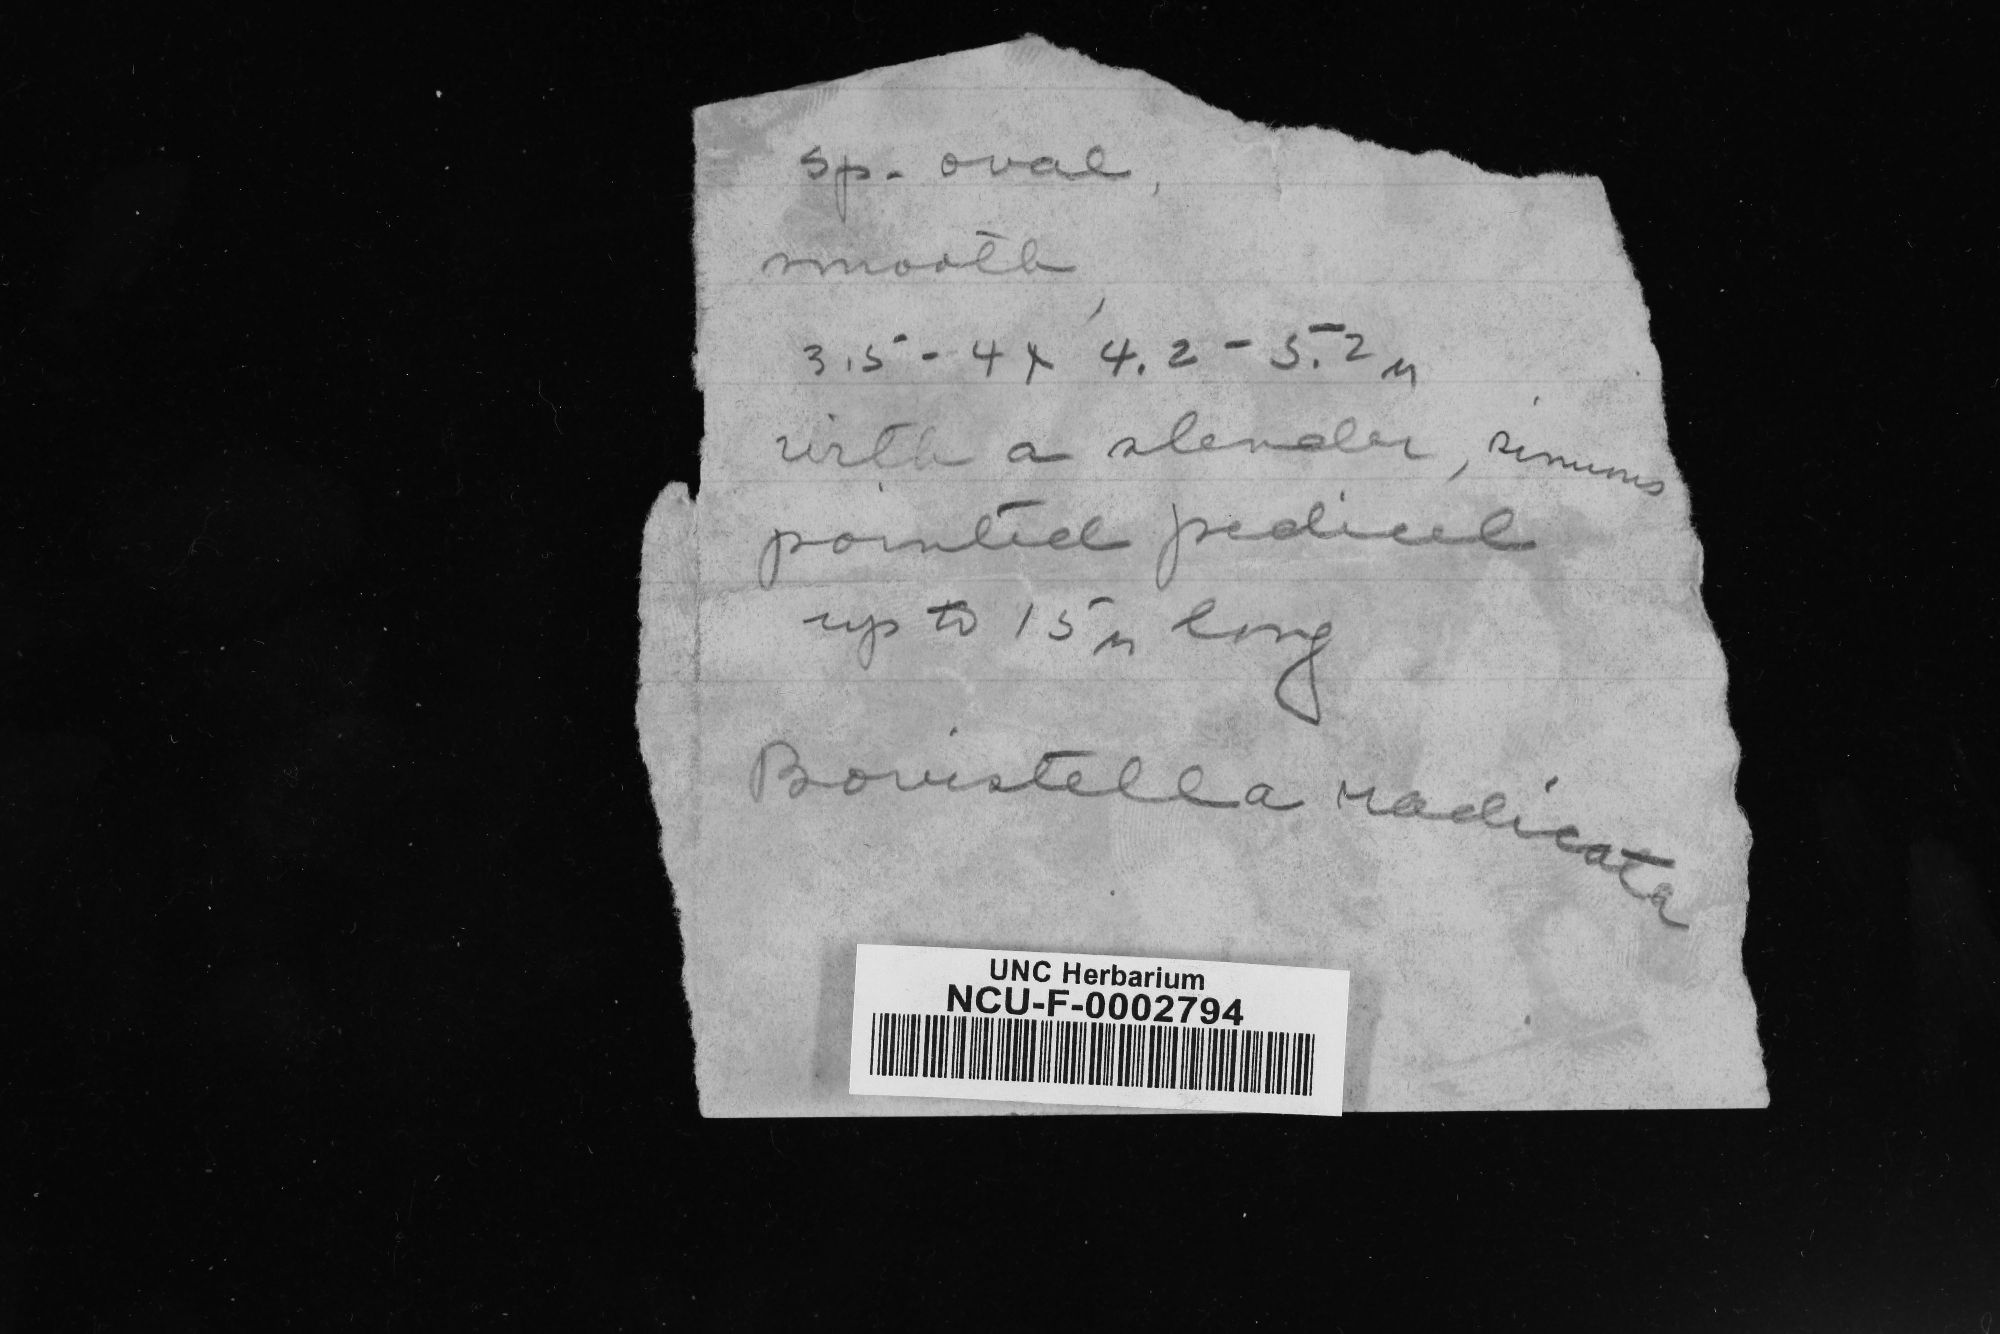 sp. oval,
smooth,
3.5 - 4 x 4.2 - 5.2 µ
with a slender, sinuous
pointed pedicel
up to 15 µ long
Bovistella radicata
UNC Herbarium
NCU-F-0002794